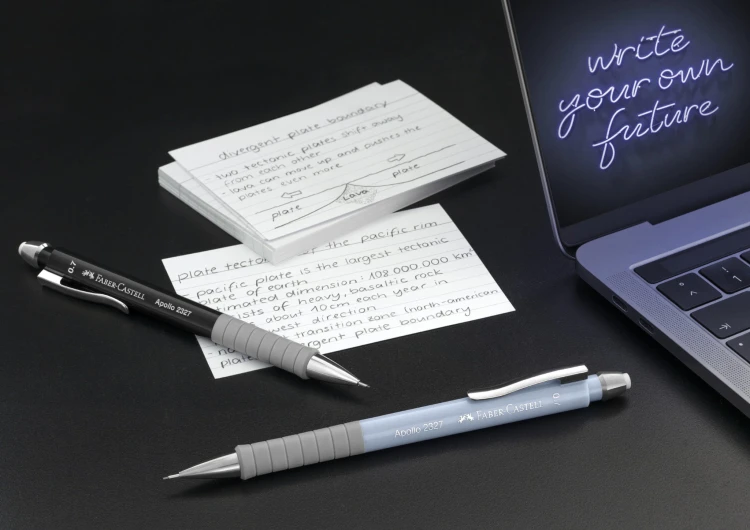 write
your own
future
divergent plate boundary
two tectonic plates shift away
from each other
- lava can move up and pushes the
plates even more
plate
Lava
plate
plate of the pacific rim
pacific plate is the largest tectonic
plate of earth
dimension: 108.000.000 km²
of heavy, basaltic rock
about 10cm each year in
west direction
transition zone (north-american
plate boundary
0.7
FABER-CASTELL
Apollo 2327
Apollo 2327
FABER-CASTELL
0.7